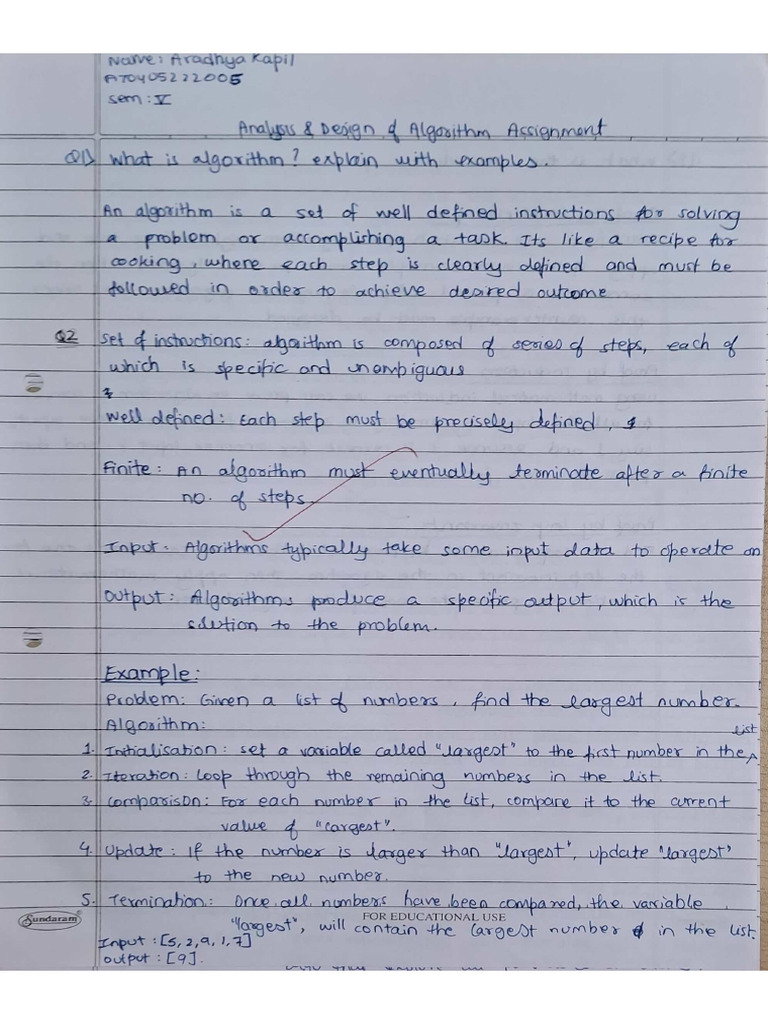 Name: Aradhya Kapil
A70405222005
Sem: V
Analysis & Design of Algorithm Assignment
Q1) What is algorithm? explain with examples.
An algorithm is a set of well defined instructions for solving
a problem or accomplishing a task. Its like a recipe for
cooking, where each step is clearly defined and must be
followed in order to achieve desired outcome
Q2 Set of instructions: algorithm is composed of series of steps, each of
which is specific and unambiguous
Well defined: Each step must be precisely defined,
Finite: An algorithm must eventually terminate after a finite
no. of steps.
Input: Algorithms typically take some input data to operate on
Output: Algorithms produce a specific output, which is the
solution to the problem.
Example:
Problem: Given a list of numbers, find the largest number.
Algorithm:
1. Initialisation: set a variable called "largest" to the first number in the list
2. Iteration: Loop through the remaining numbers in the list.
3. Comparison: For each number in the list, compare it to the current
value of "largest".
4. Update: If the number is larger than "largest", update "largest"
to the new number.
5. Termination: Once all numbers have been compared, the variable
Sundaram FOR EDUCATIONAL USE
"largest", will contain the largest number in the list.
Input: [5,2,9,1,7]
output: [9].